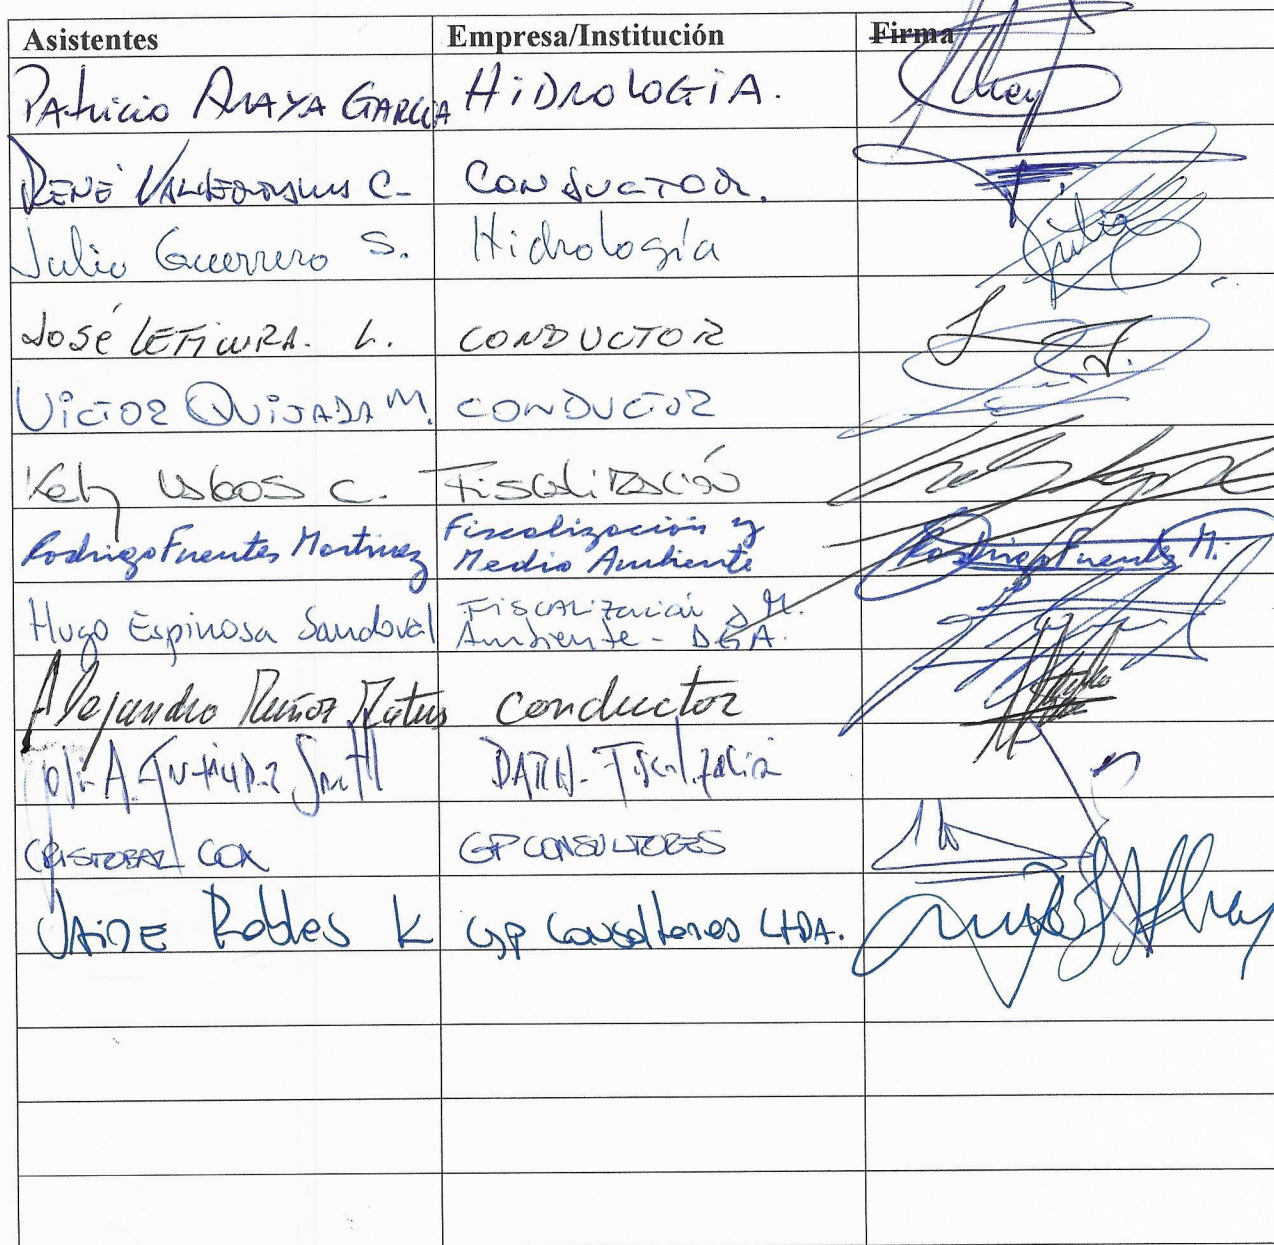 Asistentes Empresa/Institución Firma
Patricio Araya García Hidrología.
René C. Conductor.
Julio Guerrero S. Hidrología
José L. Conductor
Victor Quijada M. Conductor
C. Fiscalización
Rodrigo Fuentes Martinez Fiscalización y
Medio Ambiente Rodrigo Fuentes M.
Hugo Espinosa Sandoval Fiscalización y M.
Ambiente - DGA.
Alejandro Muñoz Matus Conductor
A. DARH - Fiscalización
Cristobal Cox GP Consultores
Jaime Robles K GP Consultores Ltda.